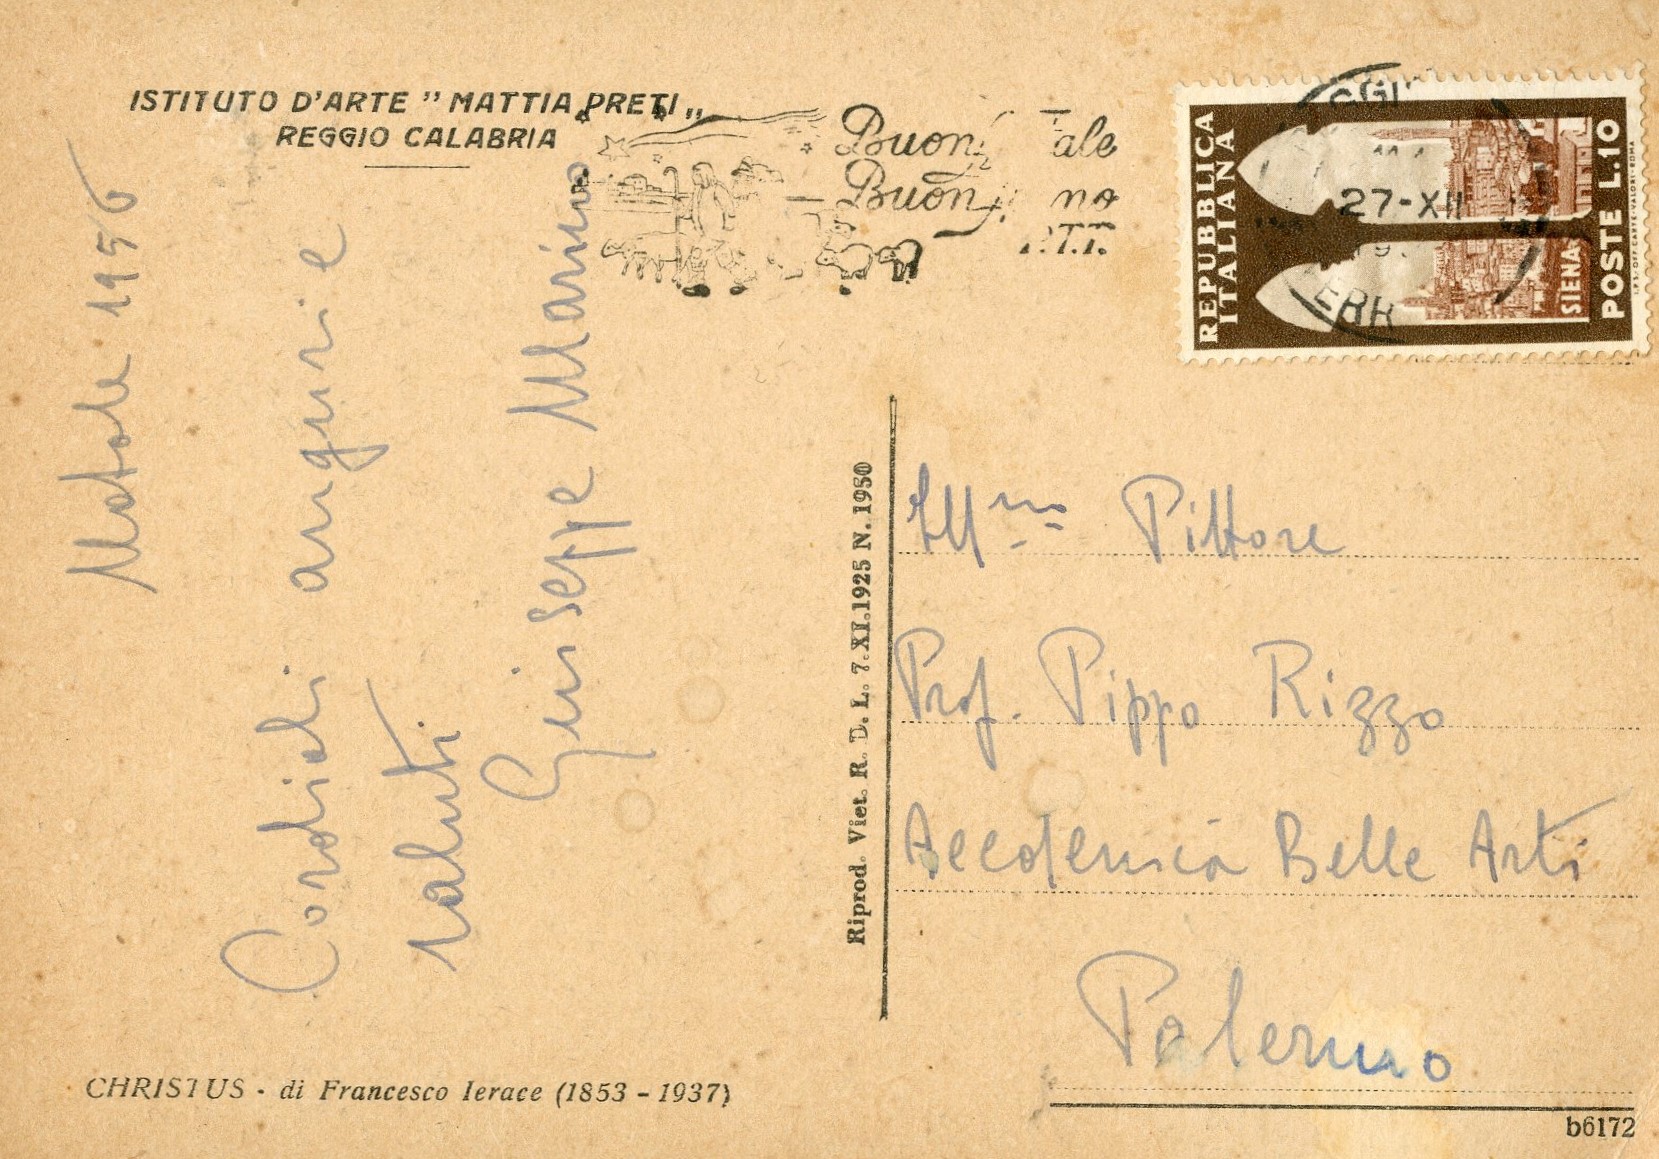 ISTITUTO D'ARTE " MATTIA PRETI „
REGGIO CALABRIA
Buon ale
Buon no
P.T.T.
REPUBBLICA
ITALIANA
SIENA
POSTE L.10
27-XII
Natale 1956
Cordiali auguri e
saluti
Giuseppe Marino
Riprod. Viet. R. D. L. 7.XI.1925 N. 1950
Ill.mo Pittore
Prof. Pippo Rizzo
Accademia Belle Arti
Palermo
CHRISTUS - di Francesco Ierace (1853 - 1937)
b6172